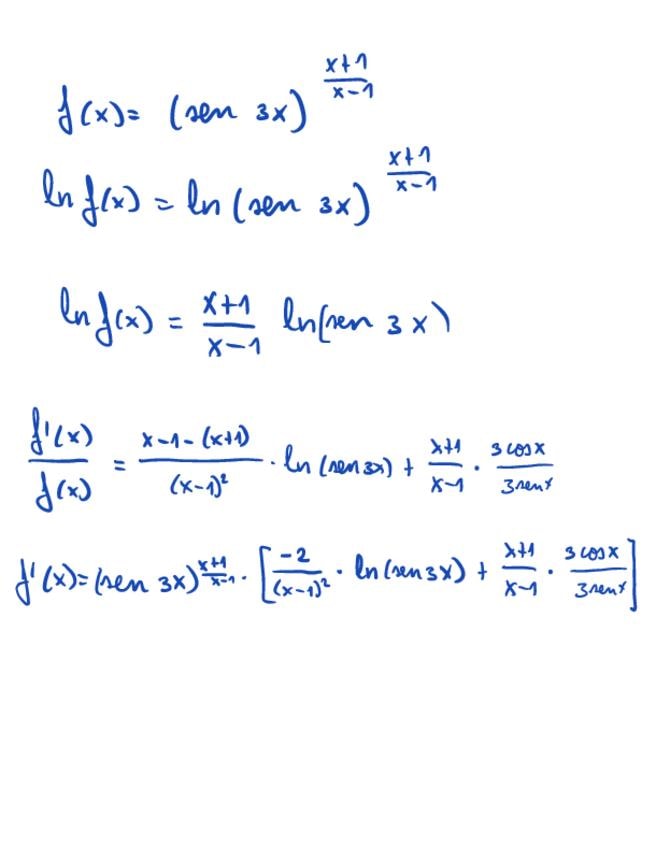 f(x) = (sen 3x)^{\frac{x+1}{x-1}}
ln f(x) = ln (sen 3x)^{\frac{x+1}{x-1}}
ln f(x) = \frac{x+1}{x-1} ln(sen 3x)
\frac{f'(x)}{f(x)} = \frac{x-1-(x+1)}{(x-1)^2} · ln (sen 3x) + \frac{x+1}{x-1} · \frac{3 cos x}{3 sen x}
f'(x) = (sen 3x)^{\frac{x+1}{x-1}} · [\frac{-2}{(x-1)^2} · ln (sen 3x) + \frac{x+1}{x-1} · \frac{3 cos x}{3 sen x}]